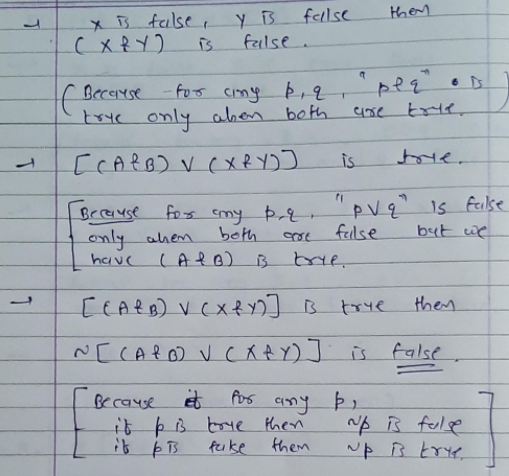 → X is false, Y is false then
(X & Y) is false.
(Because for any p, q, "p & q" is
true only when both are true.)
→ [(A & B) ∨ (X & Y)] is true.
[Because for any p, q, "p ∨ q" is false
only when both are false but we
have (A & B) is true.
→ [(A & B) ∨ (X & Y)] is true then
~[(A & B) ∨ (X & Y)] is false.
[Because for any p,
if p is true then ~p is false
if p is false then ~p is true.]